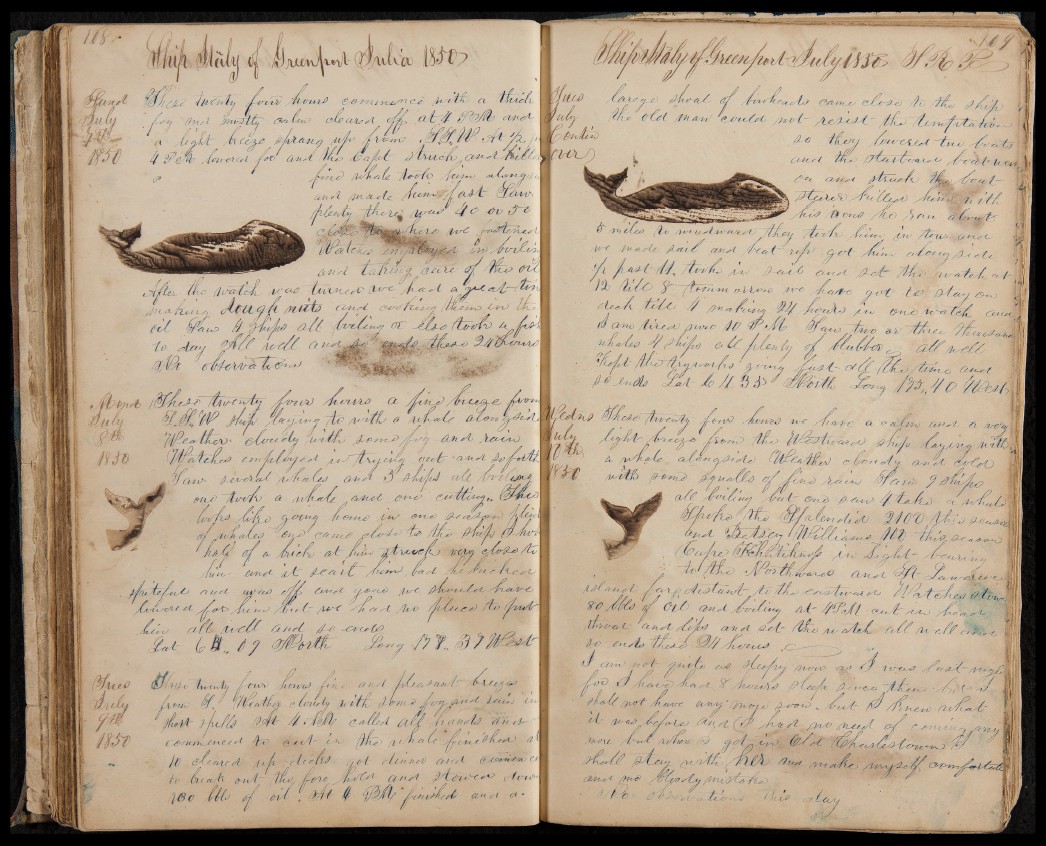 108
Ship Italy of Greenport July 1850
Sund
July
7th
1850
These twenty four hours commenced with a thick
fog and mostly calm cleared off at 4 PM and
a light breeze sprang up from S.S.W. At ½
4 PM lowered for and the Capt struck and killed
fine whale took him alongside
and made him fast Saw
plenty there was 40 or 50
close to where we fastened
Watches employed in boiling
and taking care of the oil
After the watch was turned we had a great time
making doughnuts and cooking them in the
oil Saw 4 ships all boiling or else took a fish
to day All well and so ends these 24 hours
No observations
Mond
July
8th
1850
These twenty four hours a fine breeze from
S.S.W. Ship laying to with a whale alongside
Weather cloudy with some fog and rain
Watches employed in trying out and so forth
Saw several whales and 5 ships all boiling
one took a whale and one cutting This
looks like going home in one season plenty
of whales one came close to the ship I hove
half of a brick at him struck very close to
him and it scart him bad he bucked
spiteful and was off and gone we should have
lowered for him but we had no place to put
him all well and so ends
Lat 64.. 09 North Long 178.. 39 West
Tues
July
9th
1850
These twenty four hours fine and pleasant breeze
from S. Weather cloudy with some fog and rain in
short spells At 4 AM called all hands and
commenced to cut in the whale finished at
10 cleared up decks got dinner and commenced
to break out the fore hold and stowed down
180 bbls of oil. At 4 PM finished and a
109
Ship Italy of Greenport July 1850
Tues
July
Contin
over
large shoal of bowheads came close to the ship
the old man could not resist the temptation
so they lowered two boats
and the starboard boat went
on and struck the boat
steerer killed him with
his irons he ran about
5 miles to windward they took him in tow and
we made sail and beat up got him alongside
½ past 11, took in sail and set the watch at
12 till 8 tommorrow we have got to stay on
deck till 4 making 24 hours in one watch and
I am tired now 10 P.M. Saw two or three thousand
whales 4 ships all plenty of blubber all well
Kept the tryworks going fast all the time and
so ends Lat 64 35 North Long 179, 40 West
Wedns
July
10th
1850
These twenty four hours we have a calm and a very
light breeze from the Westward ship laying with
a whale alongside Weather cloudy and cold
with some squalls of fine rain Saw 9 ships
all boiling but one saw 4 take a whale
Spoke the Splendid 2100 this season
and Betsey Williams this season
Cape in Sight bearing
to the Northward and St Lawrence
island far distant to the eastward Watches stow
80 bbls of oil and boiling at 4 PM cut in head
throat and lips and set the watch all well and
so ends these 24 hours
I am not quite as sleepy now as I was last night
for I have had 8 hours sleep since then but I
shall not have any more soon but I knew what
it was before and I had no need of coming any
more but when I get in Old Charlestown I
shall stay with her and make myself comfortable
and no bloody mistake
No observations this day